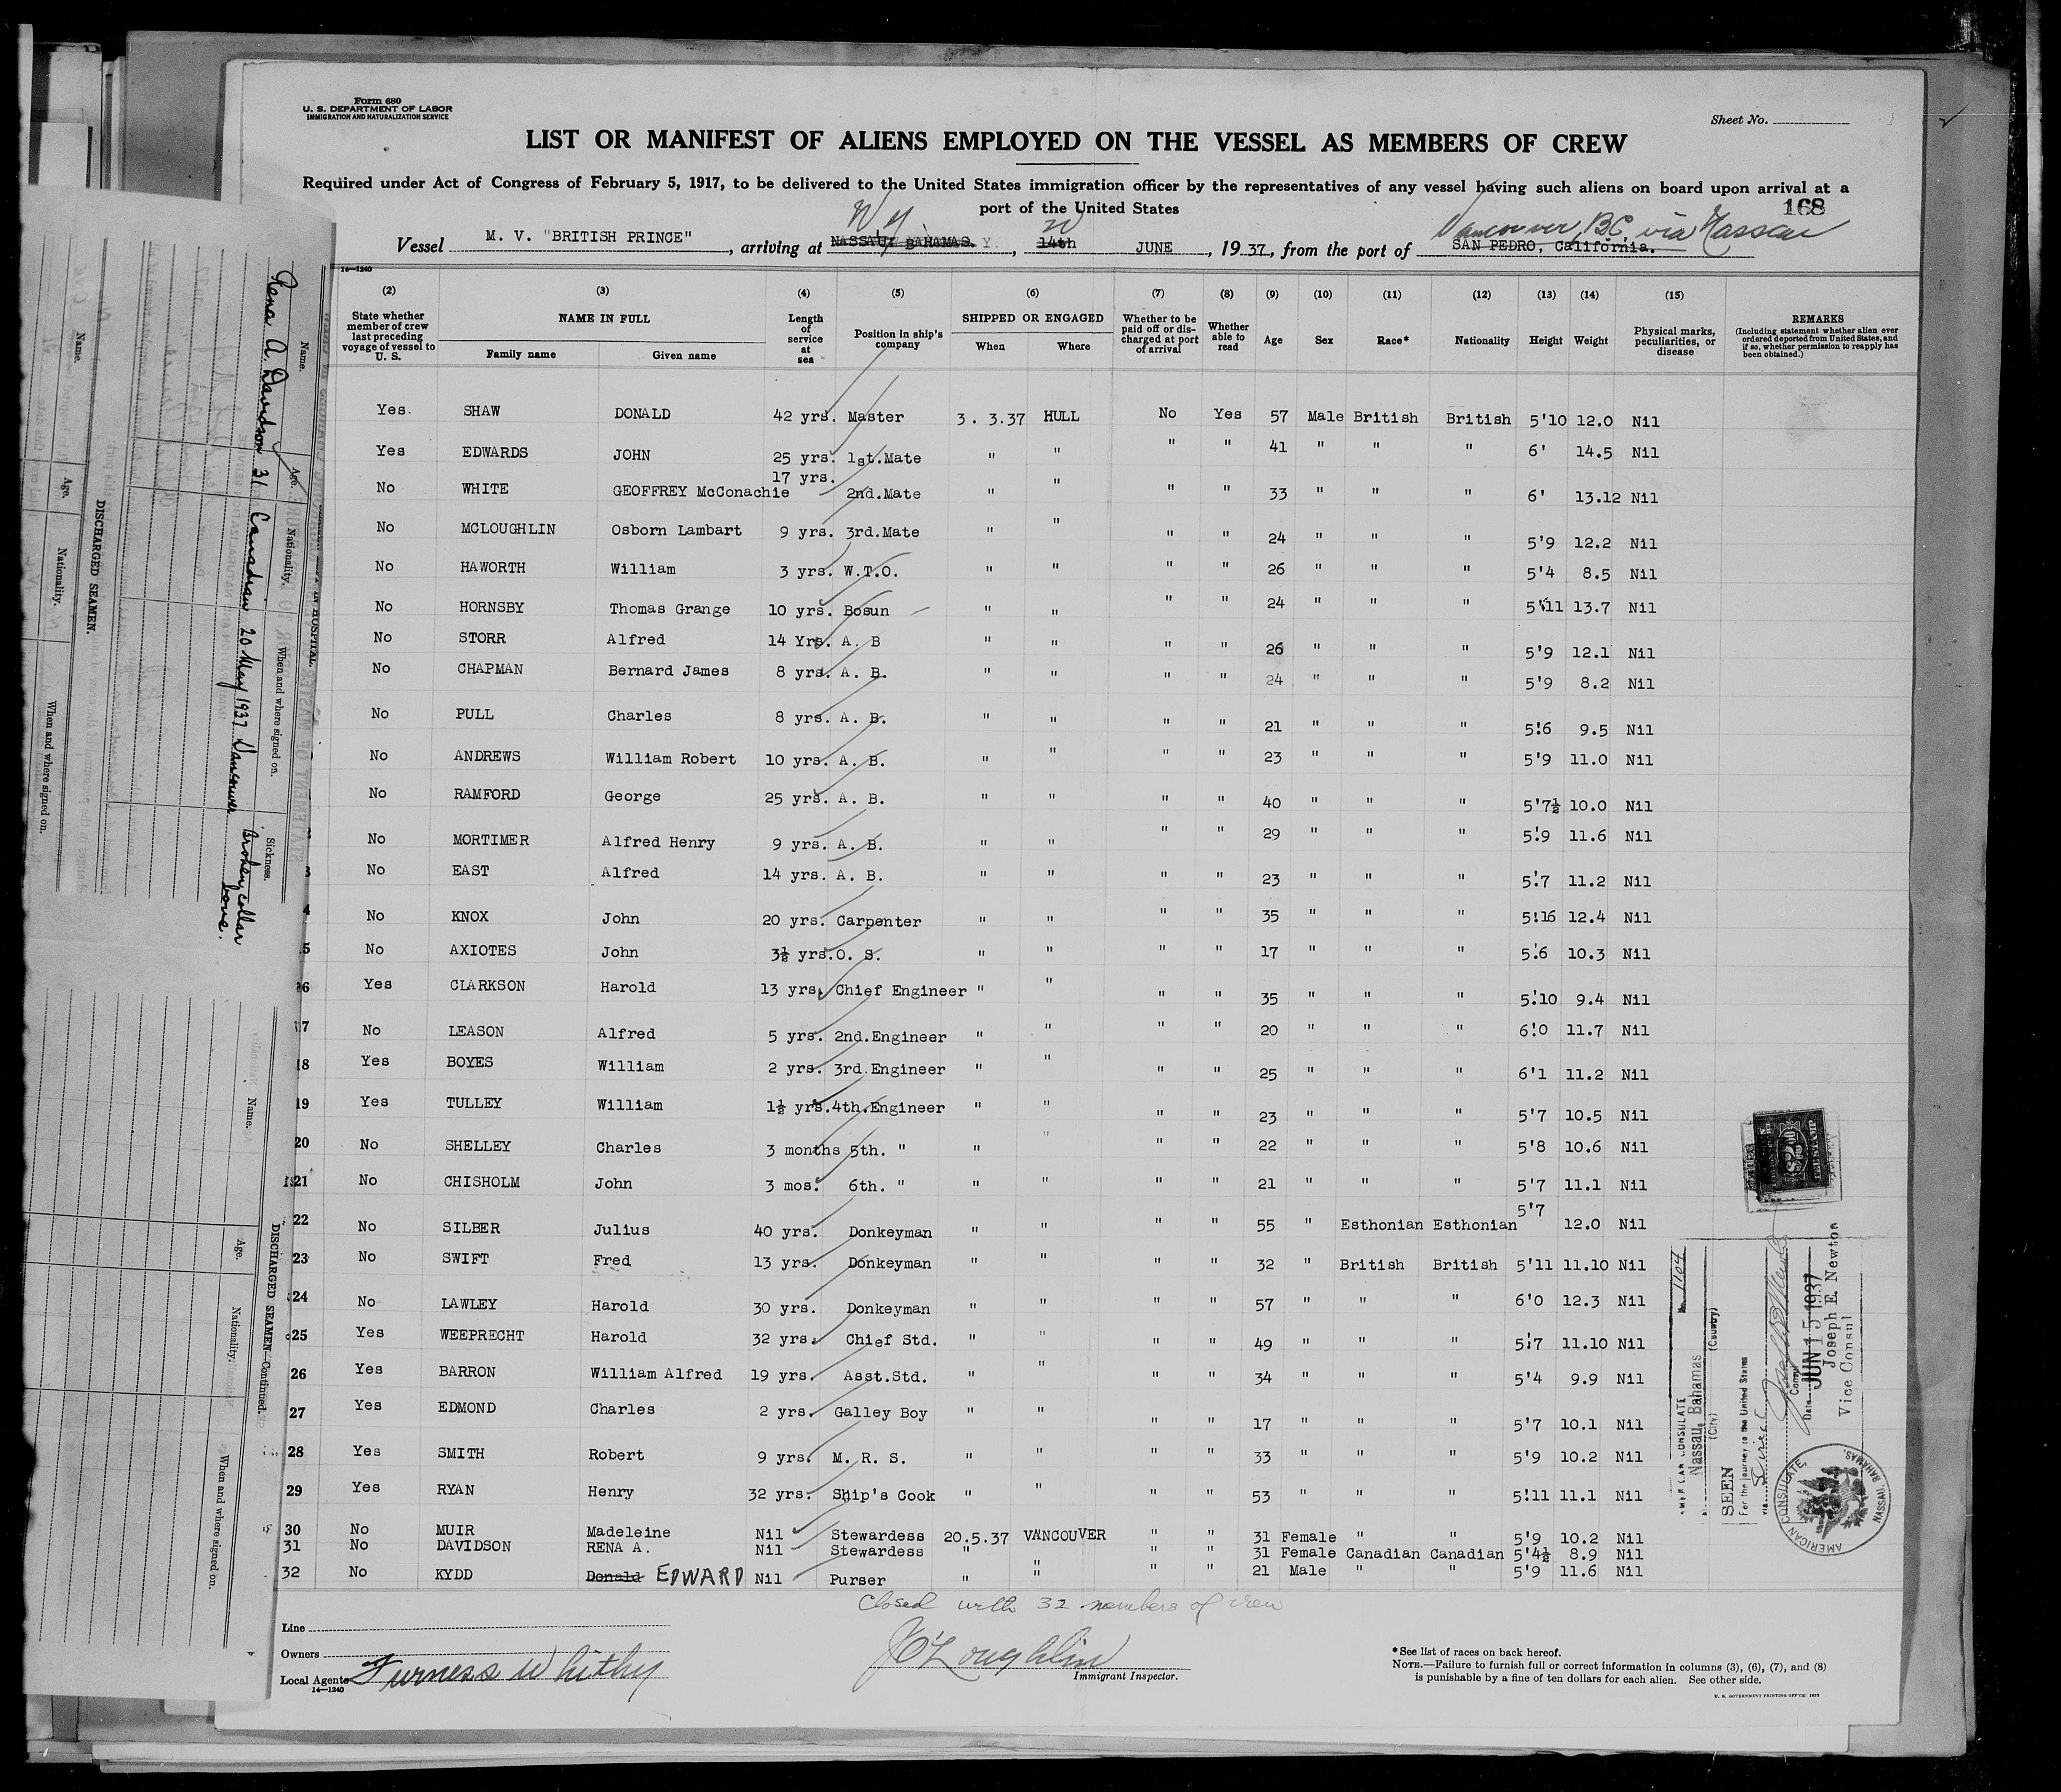 Form 680
U. S. DEPARTMENT OF LABOR
IMMIGRATION AND NATURALIZATION SERVICE
Sheet No.
LIST OR MANIFEST OF ALIENS EMPLOYED ON THE VESSEL AS MEMBERS OF CREW
Required under Act of Congress of February 5, 1917, to be delivered to the United States immigration officer by the representatives of any vessel having such aliens on board upon arrival at a
port of the United States
168
Vessel M. V. "BRITISH PRINCE", arriving at NASSAU, BAHAMAS. N Y, 14th JUNE, 1937, from the port of SAN PEDRO, California. Vancouver, BC, via Nassau
14—1240
(2) (3) (4) (5) (6) (7) (8) (9) (10) (11) (12) (13) (14) (15)
State whether member of crew last preceding voyage of vessel to U. S. NAME IN FULL Family name Given name Length of service at sea Position in ship's company SHIPPED OR ENGAGED When Where Whether to be paid off or discharged at port of arrival Whether able to read Age Sex Race* Nationality Height Weight Physical marks, peculiarities, or disease REMARKS (Including statement whether alien ever ordered deported from United States, and if so, whether permission to reapply has been obtained.)
Yes. SHAW DONALD 42 yrs. Master 3. 3.37 HULL No Yes 57 Male British British 5'10 12.0 Nil
Yes EDWARDS JOHN 25 yrs. 1st.Mate " " " " 41 " " " 6' 14.5 Nil
No WHITE GEOFFREY McConachie 17 yrs. 2nd.Mate " " " " 33 " " " 6' 13.12 Nil
No MCLOUGHLIN Osborn Lambart 9 yrs. 3rd.Mate " " " " 24 " " " 5'9 12.2 Nil
No HAWORTH William 3 yrs. W.T.O. " " " " 26 " " " 5'4 8.5 Nil
No HORNSBY Thomas Grange 10 yrs. Bosun " " " " 24 " " " 5'11 13.7 Nil
No STORR Alfred 14 Yrs. A. B " " " " 26 " " " 5'9 12.1 Nil
No CHAPMAN Bernard James 8 yrs. A. B. " " " " 24 " " " 5'9 8.2 Nil
No PULL Charles 8 yrs. A. B. " " " " 21 " " " 5'6 9.5 Nil
No ANDREWS William Robert 10 yrs. A. B. " " " " 23 " " " 5'9 11.0 Nil
No RAMFORD George 25 yrs. A. B. " " " " 40 " " " 5'7½ 10.0 Nil
No MORTIMER Alfred Henry 9 yrs. A. B. " " " " 29 " " " 5'9 11.6 Nil
3 No EAST Alfred 14 yrs. A. B. " " " " 23 " " " 5'7 11.2 Nil
4 No KNOX John 20 yrs. Carpenter " " " " 35 " " " 5'16 12.4 Nil
5 No AXIOTES John 3½ yrs. O. S. " " " " 17 " " " 5'6 10.3 Nil
6 Yes CLARKSON Harold 13 yrs. Chief Engineer " " " " 35 " " " 5'10 9.4 Nil
17 No LEASON Alfred 5 yrs. 2nd.Engineer " " " " 20 " " " 6'0 11.7 Nil
18 Yes BOYES William 2 yrs. 3rd.Engineer " " " " 25 " " " 6'1 11.2 Nil
19 Yes TULLEY William 1½ yrs. 4th.Engineer " " " " 23 " " " 5'7 10.5 Nil
20 No SHELLEY Charles 3 months 5th. " " " " " 22 " " " 5'8 10.6 Nil
21 No CHISHOLM John 3 mos. 6th. " " " " " 21 " " " 5'7 11.1 Nil
22 No SILBER Julius 40 yrs. Donkeyman " " " " 55 " Esthonian Esthonian 5'7 12.0 Nil
23 No SWIFT Fred 13 yrs. Donkeyman " " " " 32 " British British 5'11 11.10 Nil
24 No LAWLEY Harold 30 yrs. Donkeyman " " " " 57 " " " 6'0 12.3 Nil
25 Yes WEEPRECHT Harold 32 yrs. Chief Std. " " " " 49 " " " 5'7 11.10 Nil
26 Yes BARRON William Alfred 19 yrs. Asst.Std. " " " " 34 " " " 5'4 9.9 Nil
27 Yes EDMOND Charles 2 yrs. Galley Boy " " " " 17 " " " 5'7 10.1 Nil
28 Yes SMITH Robert 9 yrs. M. R. S. " " " " 33 " " " 5'9 10.2 Nil
29 Yes RYAN Henry 32 yrs. Ship's Cook " " " " 53 " " " 5'11 11.1 Nil
30 No MUIR Madeleine Nil Stewardess 20.5.37 VANCOUVER " " 31 Female " " 5'9 10.2 Nil
31 No DAVIDSON RENA A. Nil Stewardess " " " " 31 Female Canadian Canadian 5'4½ 8.9 Nil
32 No KYDD Donald EDWARD Nil Purser " " " " 21 Male " " 5'9 11.6 Nil
Closed with 32 members of crew
Line
Owners
Local Agents Furness Withy
14—1240
J O'Loughlin
Immigrant Inspector.
*See list of races on back hereof.
NOTE.—Failure to furnish full or correct information in columns (3), (6), (7), and (8)
is punishable by a fine of ten dollars for each alien. See other side.
U. S. GOVERNMENT PRINTING OFFICE
No. 1104
AMERICAN CONSULATE
Nassau, Bahamas
(City) (Country)
SEEN
For the journey to the United States
via Direct
Date JUN 15 1937
Joseph E. Newton
Vice Consul
AMERICAN CONSULATE, NASSAU, BAHAMAS.
$2
Name. Age. Nationality. When and where signed on. Sickness.
Rena A. Davidson 31 Canadian 20 May 1937 Vancouver Broken collar bone.
DISCHARGED SEAMEN.
Name. Age. Nationality. When and where signed on.
DISCHARGED SEAMEN—Continued.
Name. Age. Nationality. When and where signed on.